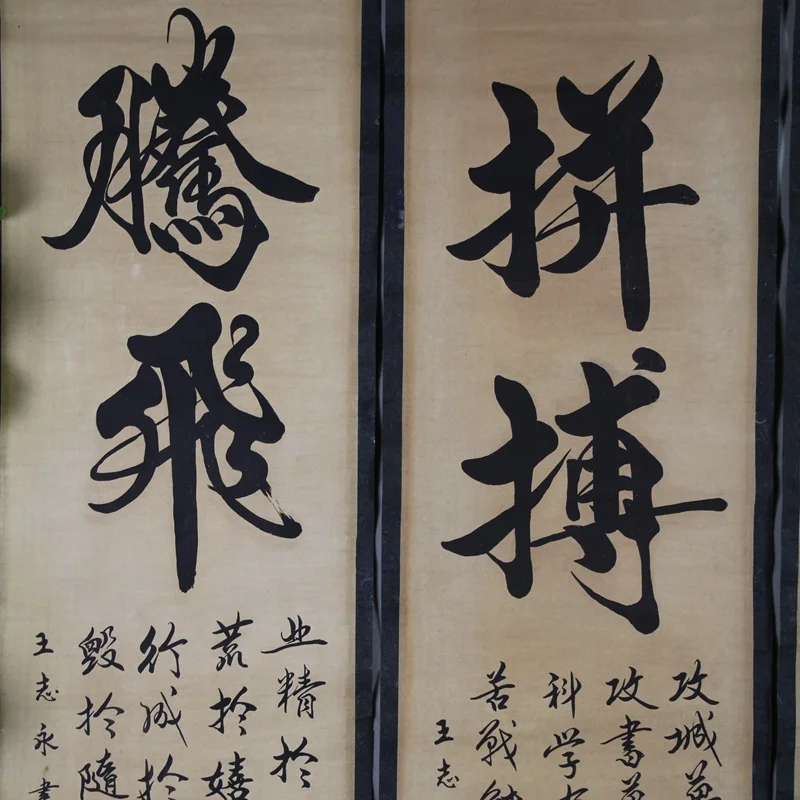 拼搏
攻城
攻書
科学
苦戰
王志
騰飛
业精於
荒於嬉
行成於
毀於隨
王志永書